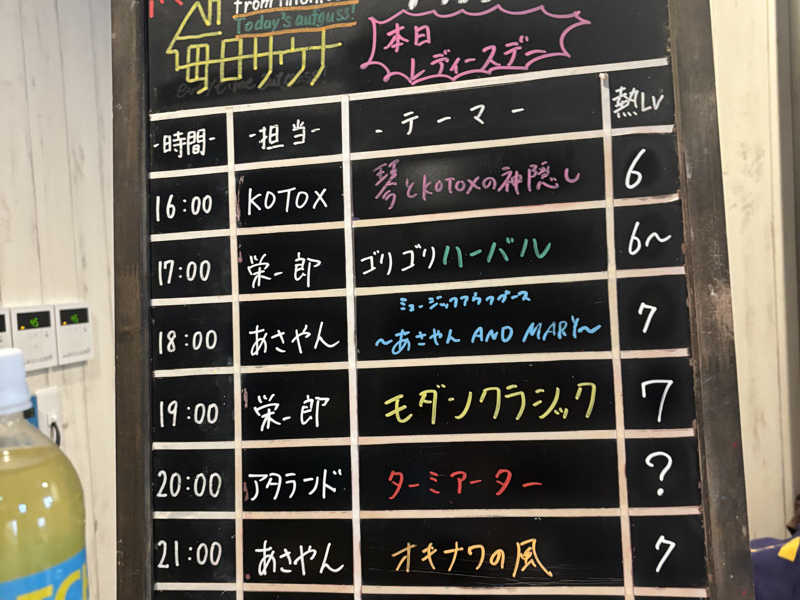 Today's autouss!
毎日サウナ
本日
レディースデー
-時間- -担当- -テーマー 熱LV
16:00 KOTOX 琴とKOTOXの神隠し 6
17:00 栄一郎 ゴリゴリハーバル 6〜
ミュージックアウフグース
18:00 あさやん 〜あさやん AND MARY〜 7
19:00 栄一郎 モダンクラシック 7
20:00 アタランド ターミアーター ?
21:00 あさやん オキナワの風 7